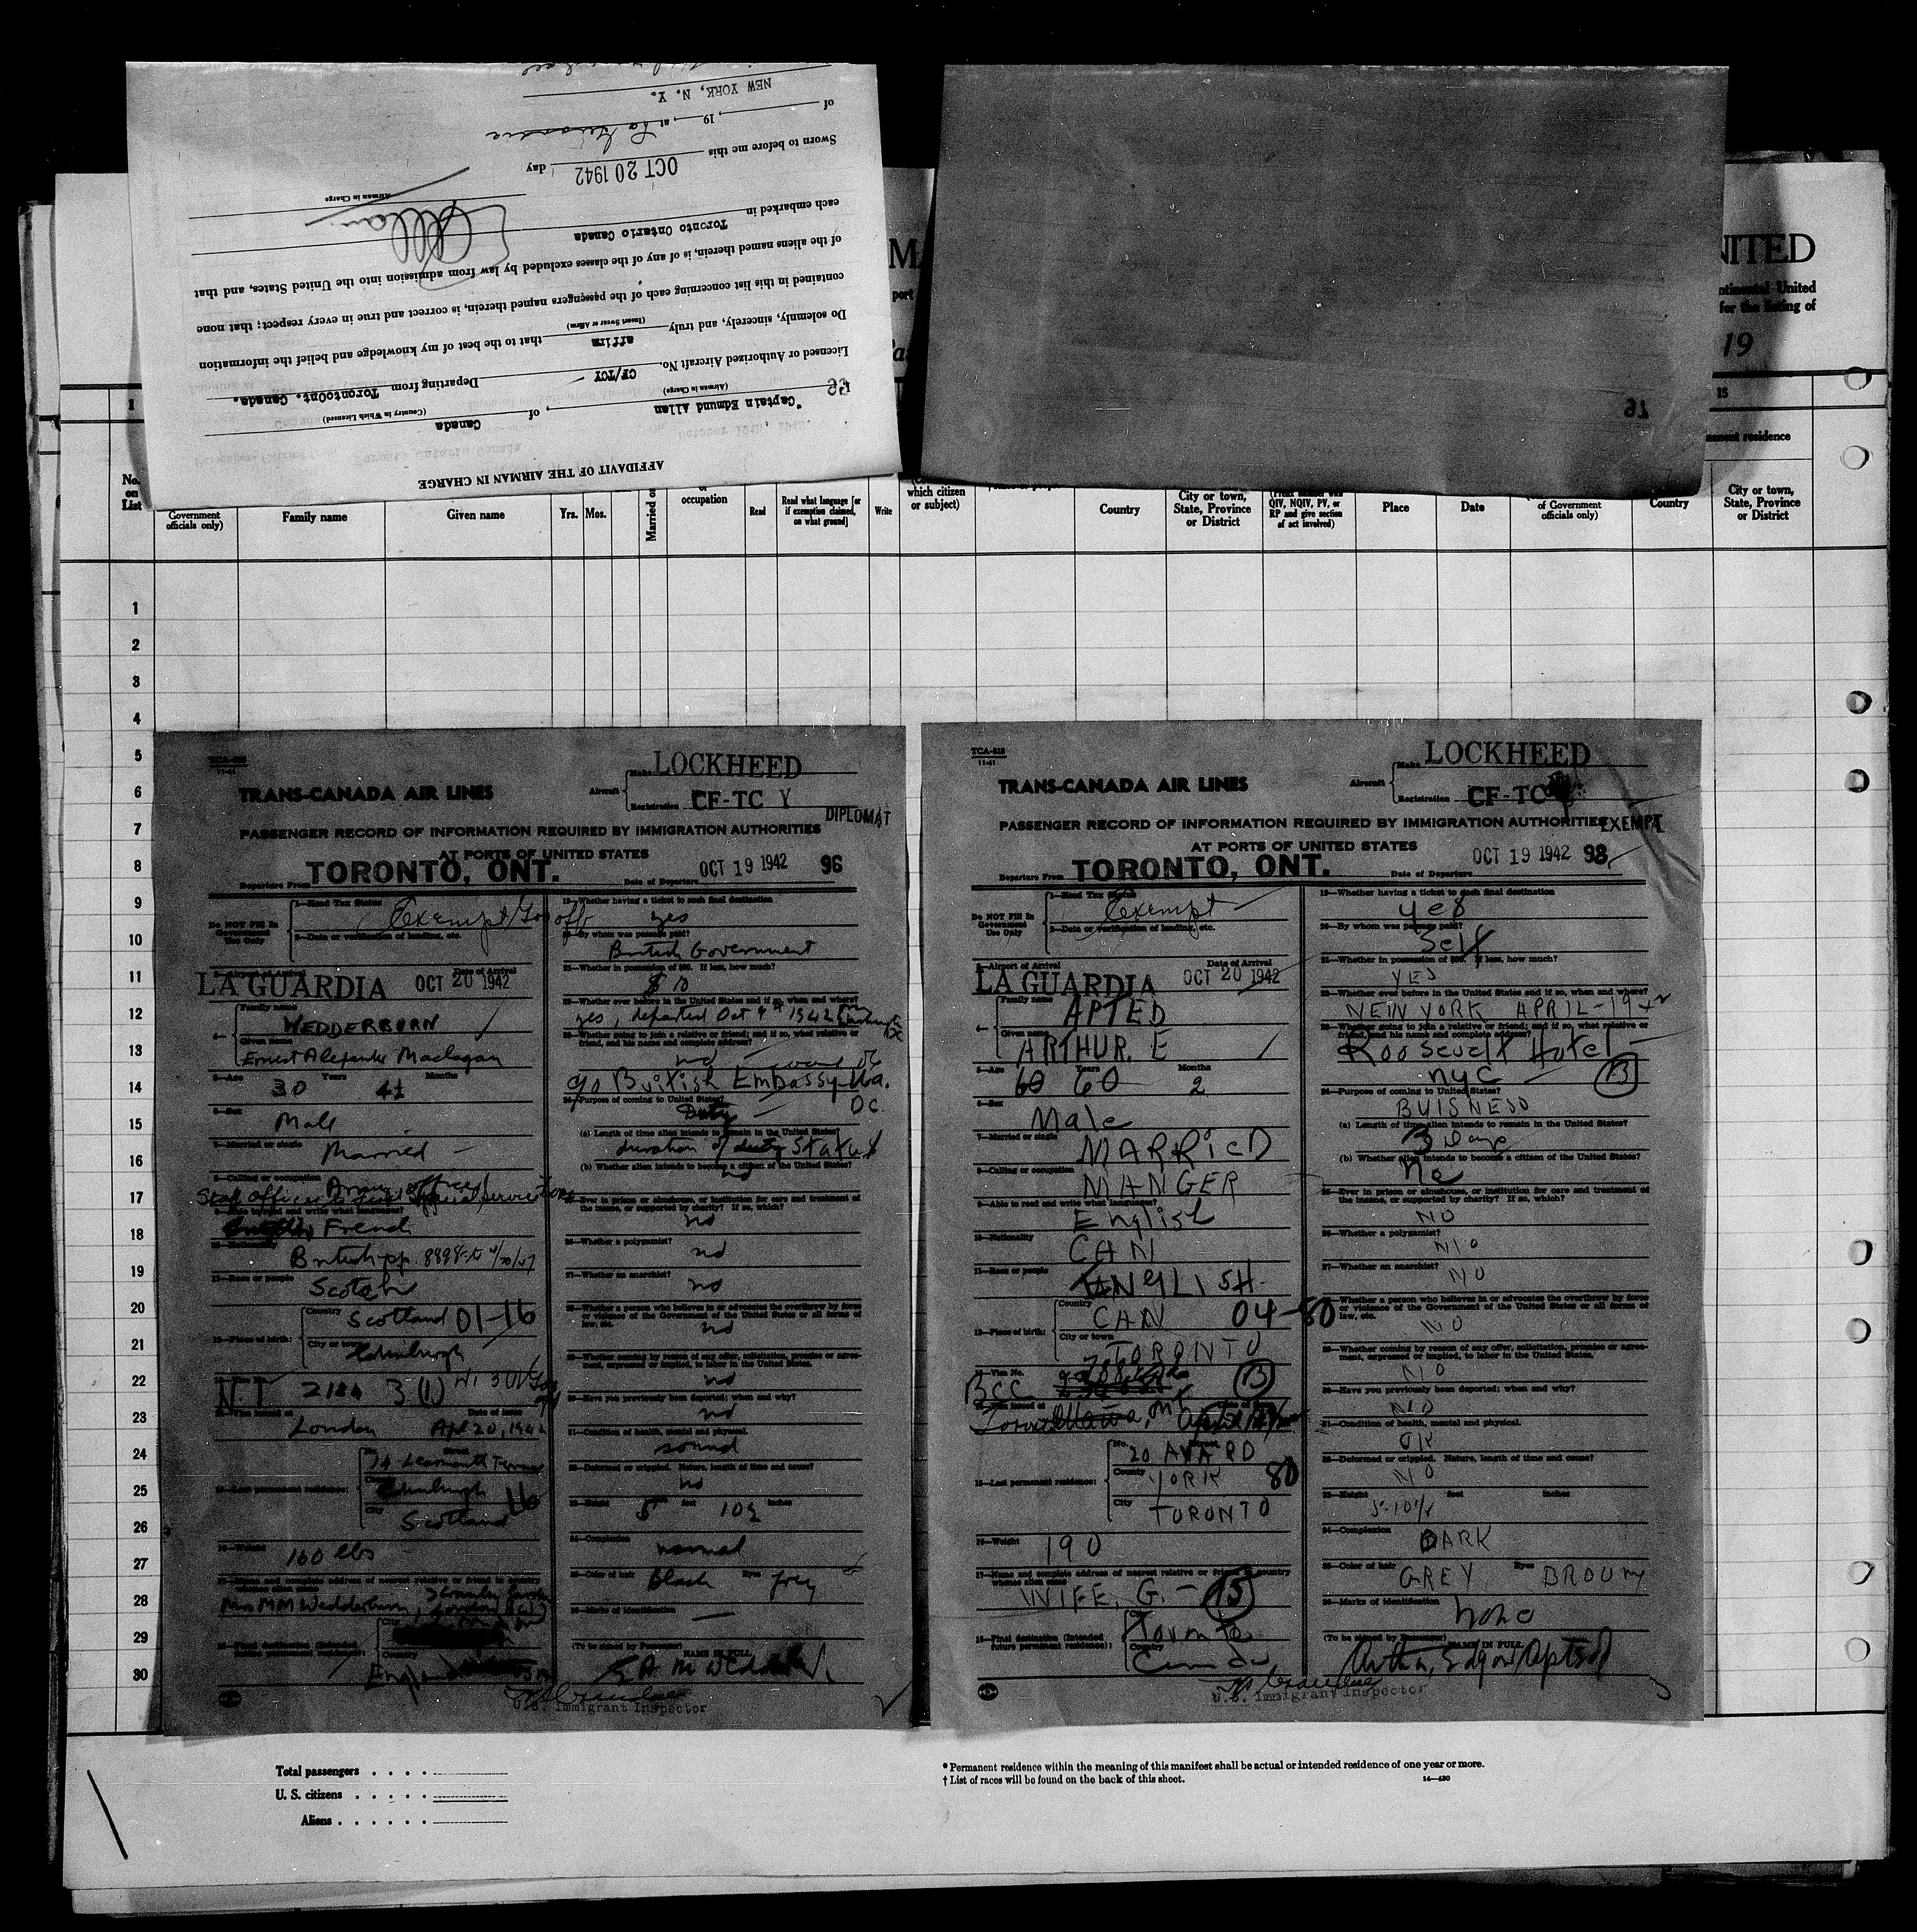 AFFIDAVIT OF THE AIRMAN IN CHARGE
"Captain Edmund Allan, of Canada
(Airman in Charge) (Country in Which Licensed)
Licensed or Authorized Aircraft No. CF/TCY Departing from TorontoOnt. Canada.
Do solemnly, sincerely, and truly affirm that to the best of my knowledge and belief the information
(Insert Swear or Affirm)
contained in this list concerning each of the passengers named therein, is correct and true in every respect; that none
of the aliens named therein, is of any of the classes excluded by law from admission into the United States, and that
each embarked in Toronto Ontario Canada
Airman in Charge
Sworn to before me this OCT 20 1942 day
of , 19 , at La Guardia
NEW YORK, N. Y.
NITED
ntinental United
for the listing of
19
15
manent residence
No. on List
Government officials only)
Family name
Given name
Yrs.
Mos.
Married or
occupation
Read
Read what language [or if exemption claimed, on what ground]
Write
which citizen or subject)
Country
City or town, State, Province or District
QIV, NQIV, PV, or RP and give section of act involved)
Place
Date
of Government officials only)
Country
City or town, State, Province or District
1
2
3
4
5
6
7
8
9
10
11
12
13
14
15
16
17
18
19
20
21
22
23
24
25
26
27
28
29
30
11-41
Aircraft Make LOCKHEED
TRANS-CANADA AIR LINES
Registration CF-TC Y
DIPLOMAT
PASSENGER RECORD OF INFORMATION REQUIRED BY IMMIGRATION AUTHORITIES
AT PORTS OF UNITED STATES
Departure From TORONTO, ONT. Date of Departure OCT 19 1942 96
1—Head Tax Status Exempt
Do NOT Fill In Government Use Only
2—Data or verification of landing, etc.
3—Airport of Arrival Date of Arrival
LA GUARDIA OCT 20 1942
Family name
WEDDERBURN
Given name
Ernest Alexander Maclagan
5—Age 30 Years Months
6—Sex
Male
7—Married or single
Married
8—Calling or occupation
Army officer
9—Able to read and write what languages?
French
10—Nationality
British
11—Race or people
Scotch
12—Place of birth: Country Scotland 01-16
City or town Edinburgh
N.I. 2184 3(1)
14—Visa issued at Date of Issue
London Apl 20, 1942
15—Last permanent residence: No. Street
74 Learmonth Terrace
Edinburgh
City
Scotland 16
16—Weight 160 lbs
17—Name and complete address of nearest relative or friend in country whence alien came
Mrs MM Wedderburn,
18—Final destination (Intended future permanent residence):
Country
19—Whether having a ticket to such final destination
yes
20—By whom was passage paid?
British Government
21—Whether in possession of $50. If less, how much?
$10
22—Whether ever before in the United States and if so, when and where?
yes, departed Oct 9th 1942
23—Whether going to join a relative or friend; and if so, what relative or friend, and his name and complete address?
no
c/o British Embassy Wa.
DC.
24—Purpose of coming to United States?
Duty
(a) Length of time alien intends to remain in the United States?
duration of status
(b) Whether alien intends to become a citizen of the United States?
no
25—Ever in prison or almshouse, or institution for care and treatment of the insane, or supported by charity? If so, which?
no
26—Whether a polygamist?
no
27—Whether an anarchist?
no
28—Whether a person who believes in or advocates the overthrow by force or violence of the Government of the United States or all forms of law, etc.
no
29—Whether coming by reason of any offer, solicitation, promise or agreement, expressed or implied, to labor in the United States.
no
30—Have you previously been deported; when and why?
no
31—Condition of health, mental and physical.
sound
32—Deformed or crippled. Nature, length of time and cause?
no
33—Height 5 feet 10½ inches
34—Complexion
normal
35—Color of hair Black Eyes grey
36—Marks of identification —
(To be signed by Passenger) NAME IN FULL
U.S. Immigrant Inspector
TCA-818
11-41
Aircraft Make LOCKHEED
TRANS-CANADA AIR LINES
Registration CF-TC
PASSENGER RECORD OF INFORMATION REQUIRED BY IMMIGRATION AUTHORITIES EXEMPT
AT PORTS OF UNITED STATES
Departure From TORONTO, ONT. Date of Departure OCT 19 1942 98
1—Head Tax Status
Exempt
Do NOT Fill In Government Use Only
2—Data or verification of landing, etc.
3—Airport of Arrival Date of Arrival
LA GUARDIA OCT 20 1942
Family name
APTED
Given name
ARTHUR. E
5—Age 60 Years Months 2
6—Sex
Male
7—Married or single
MARRIED
8—Calling or occupation
MANGER
9—Able to read and write what languages?
English
10—Nationality
CAN
11—Race or people
ENGLISH.
12—Place of birth: Country
CAN 04-80
City or town
TORONTO
13—Visa No.
BCC
15—Last permanent residence: No. Street
20 AVA RD
County YORK 80
City TORONTO
16—Weight 190
17—Name and complete address of nearest relative or friend in country whence alien came
WIFE, G. —
18—Final destination (Intended future permanent residence): City Toronto
Country
Canada
19—Whether having a ticket to such final destination
yes
20—By whom was passage paid?
Self
21—Whether in possession of $50. If less, how much?
YES
22—Whether ever before in the United States and if so, when and where?
NEW YORK APRIL-1942
23—Whether going to join a relative or friend; and if so, what relative or friend, and his name and complete address?
Roosevelt Hotel
NYC
24—Purpose of coming to United States?
BUISNESS
(a) Length of time alien intends to remain in the United States?
3 Days
(b) Whether alien intends to become a citizen of the United States?
No
25—Ever in prison or almshouse, or institution for care and treatment of the insane, or supported by charity? If so, which?
NO
26—Whether a polygamist?
NO
27—Whether an anarchist?
NO
28—Whether a person who believes in or advocates the overthrow by force or violence of the Government of the United States or all forms of law, etc.
NO
29—Whether coming by reason of any offer, solicitation, promise or agreement, expressed or implied, to labor in the United States.
NO
30—Have you previously been deported; when and why?
NO
31—Condition of health, mental and physical.
OK
32—Deformed or crippled. Nature, length of time and cause?
NO
33—Height 5-10½ feet inches
34—Complexion
DARK
35—Color of hair GREY Eyes BROWN
36—Marks of identification
none
(To be signed by Passenger) NAME IN FULL
Arthur Edgar Apted
U.S. Immigrant Inspector
Total passengers . . . .
U. S. citizens . . . . .
Aliens . . . . . .
* Permanent residence within the meaning of this manifest shall be actual or intended residence of one year or more.
† List of races will be found on the back of this sheet. 14—430